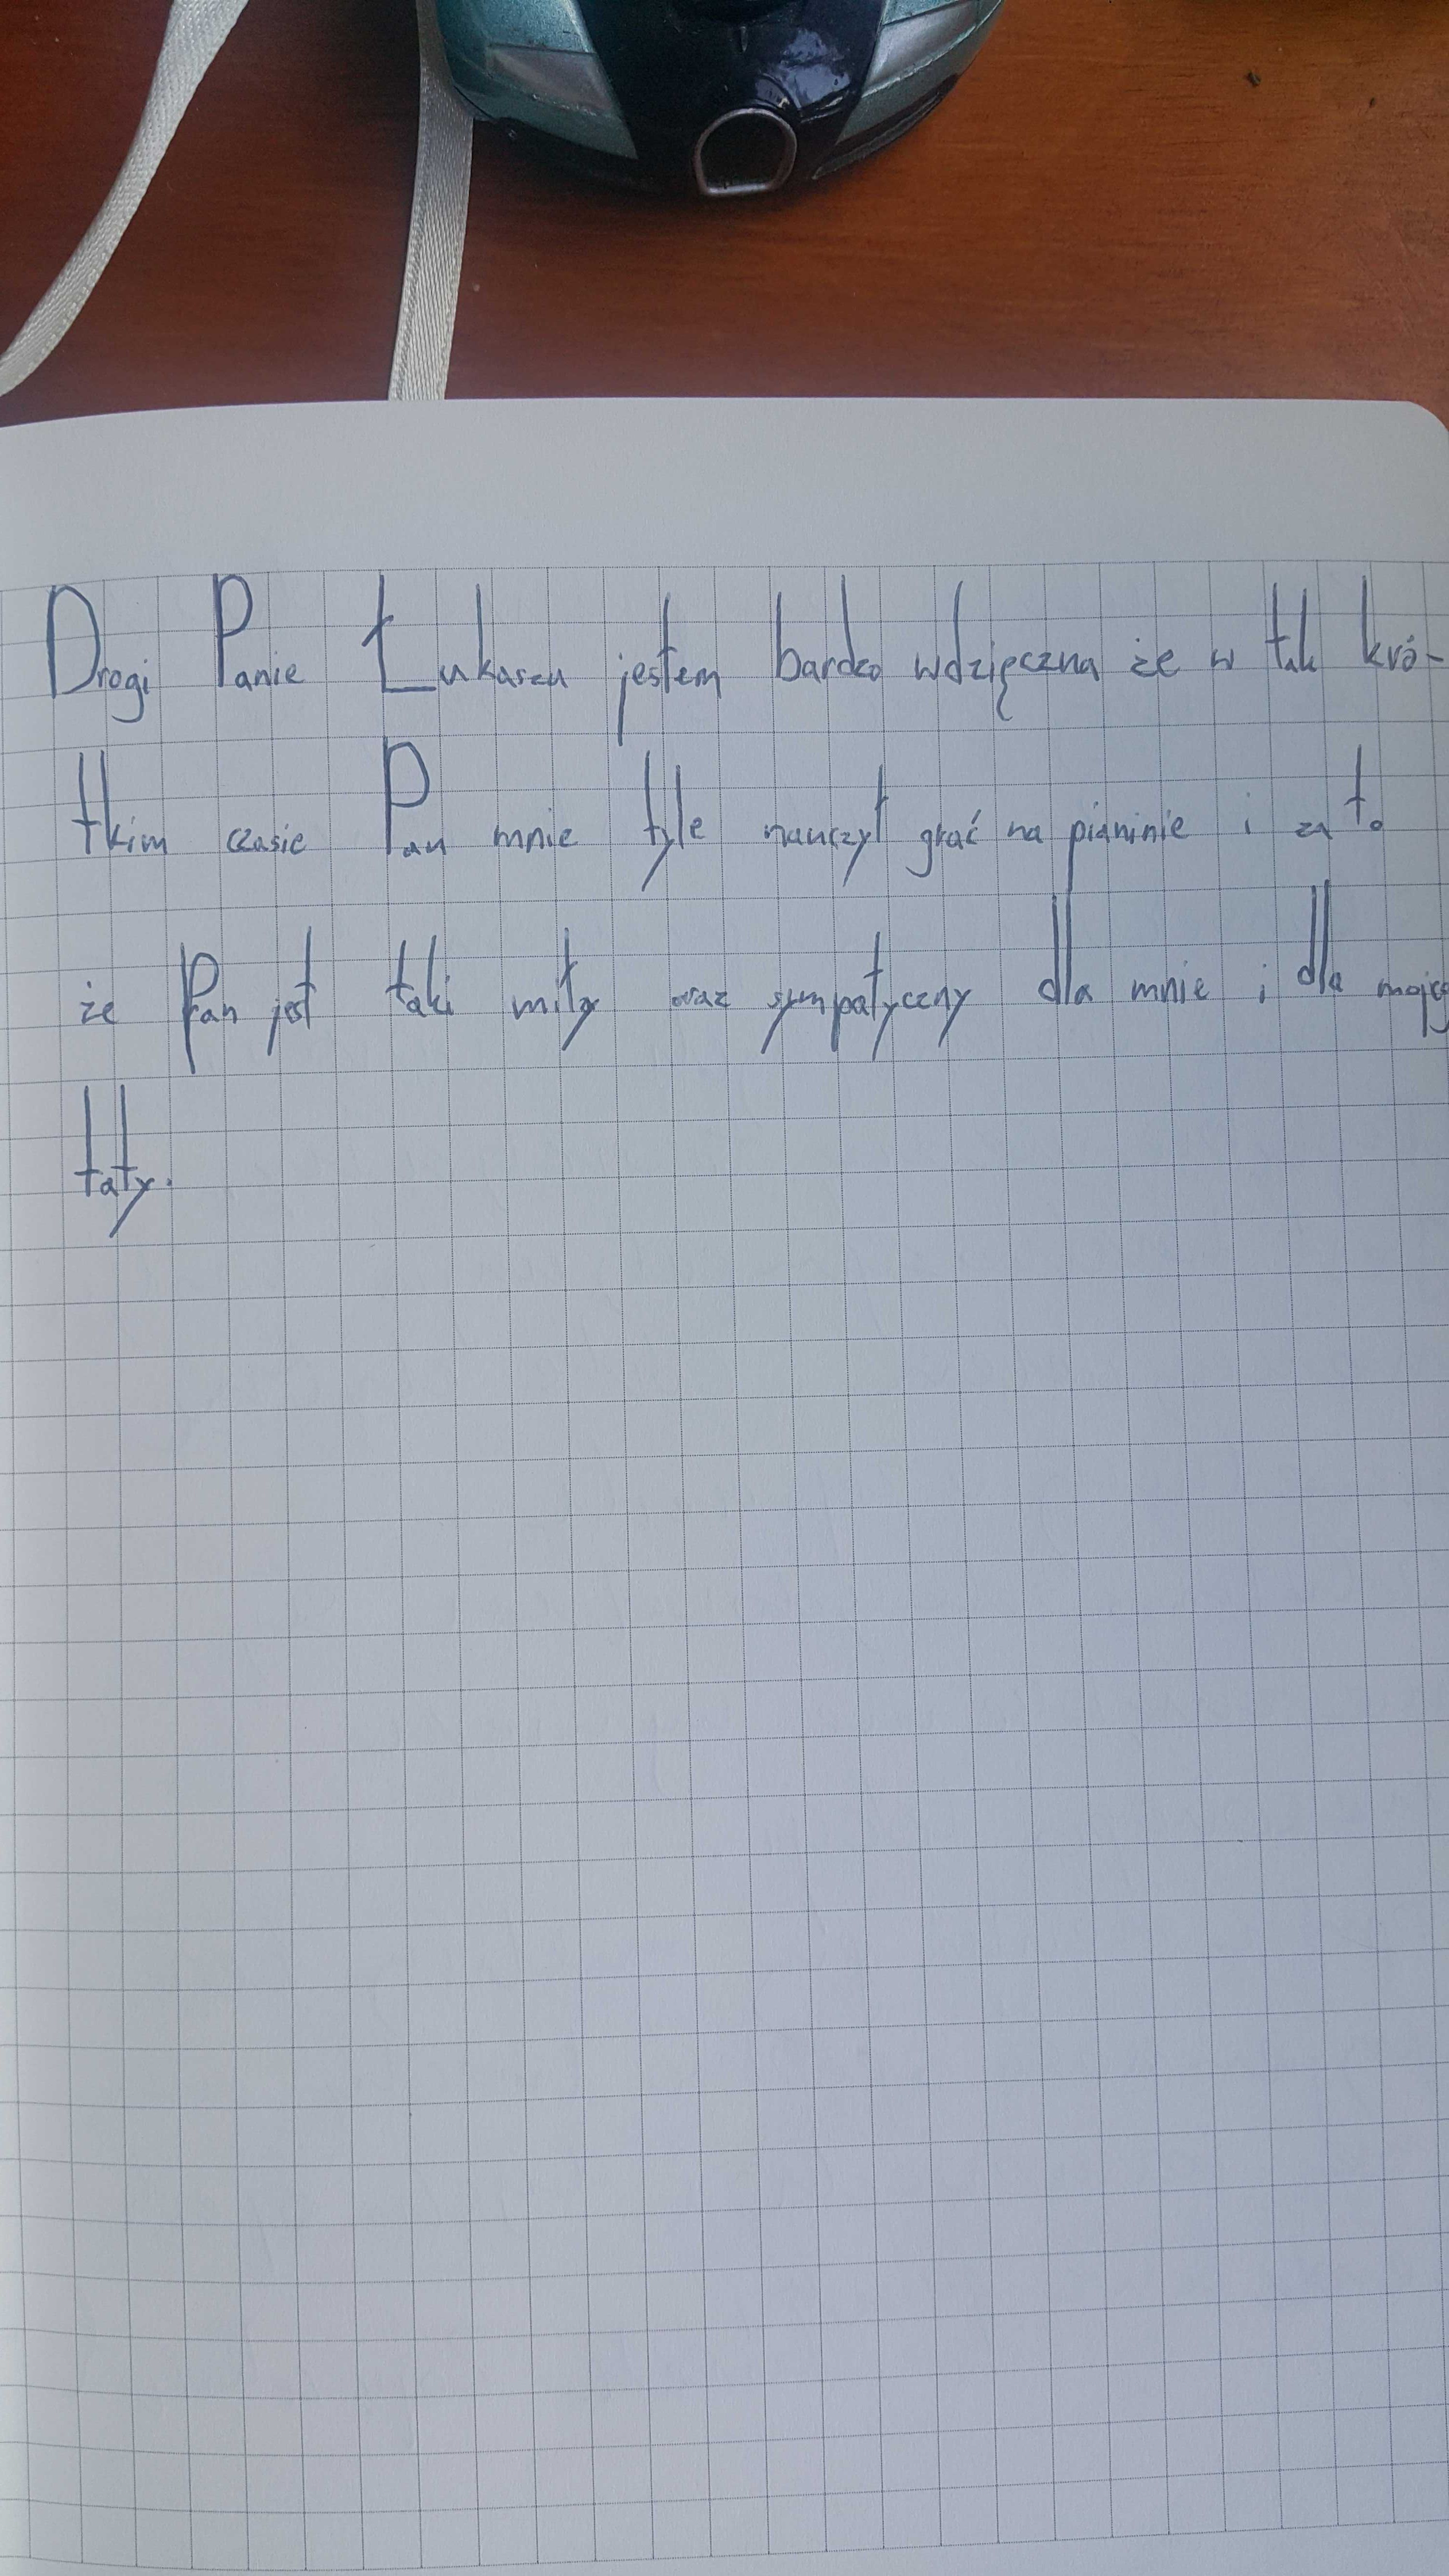 Drogi Panie Łukaszu jestem bardzo wdzięczna że w tak kró-
tkim czasie Pan mnie tyle nauczył grać na pianinie i za to
że Pan jest taki miły oraz sympatyczny dla mnie i dla mojego
taty.